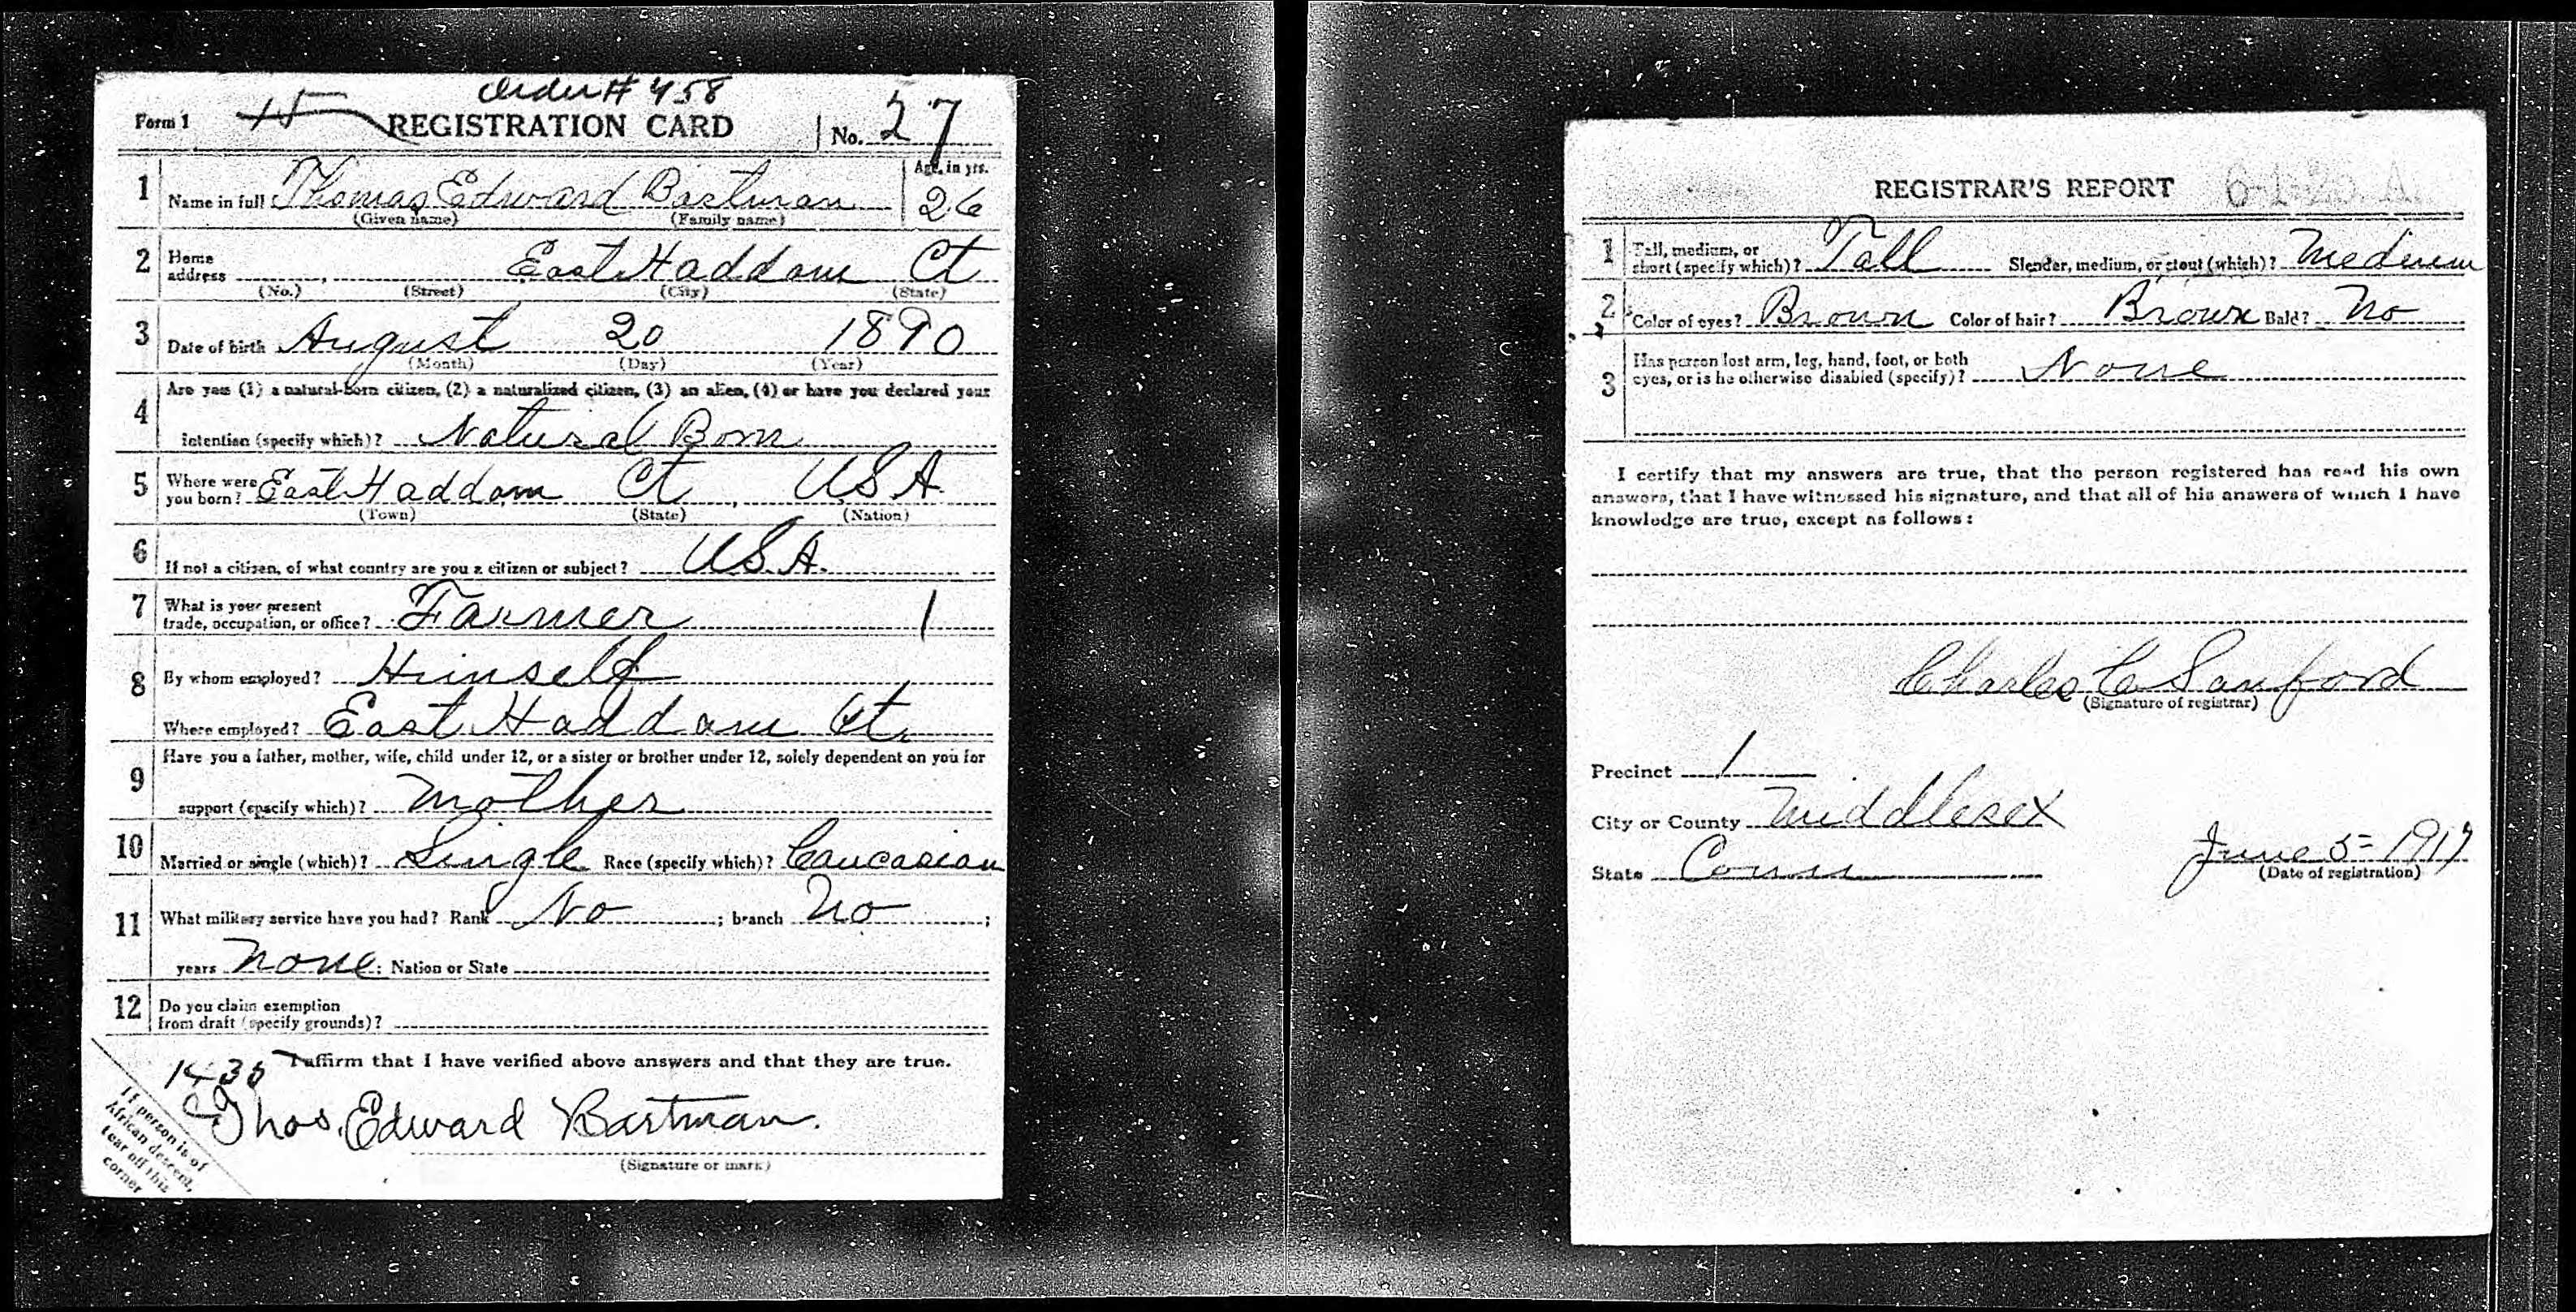 Order # 458
Form 1 15 REGISTRATION CARD No. 27
1 Name in full Thomas Edward Bartman Age, in yrs. 26
(Given name) (Family name)
2 Home address East Haddam Ct
(No.) (Street) (City) (State)
3 Date of birth August 20 1890
(Month) (Day) (Year)
4 Are you (1) a natural-born citizen, (2) a naturalized citizen, (3) an alien, (4) or have you declared your
intention (specify which)? Natural Born
5 Where were you born? East Haddam Ct, USA.
(Town) (State) (Nation)
6 If not a citizen, of what country are you a citizen or subject? USA.
7 What is your present
trade, occupation, or office? Farmer 1
8 By whom employed? Himself
Where employed? East Haddam Ct.
9 Have you a father, mother, wife, child under 12, or a sister or brother under 12, solely dependent on you for
support (specify which)? Mother
10 Married or single (which)? Single Race (specify which)? Caucasian
11 What military service have you had? Rank No ; branch No ;
years None ; Nation or State
12 Do you claim exemption
from draft (specify grounds)?
I affirm that I have verified above answers and that they are true.
1435
Thos. Edward Bartman.
(Signature or mark)
If person is of
African descent,
tear off this
corner
REGISTRAR'S REPORT 6-1-25. A.
1 Tall, medium, or
short (specify which)? Tall Slender, medium, or stout (which)? Medium
2 Color of eyes? Brown Color of hair? Brown Bald? No
3 Has person lost arm, leg, hand, foot, or both
eyes, or is he otherwise disabled (specify)? None
I certify that my answers are true, that the person registered has read his own
answers, that I have witnessed his signature, and that all of his answers of which I have
knowledge are true, except as follows:
Charles C Sanford
(Signature of registrar)
Precinct 1
City or County Middlesex
State Conn June 5- 1917
(Date of registration)